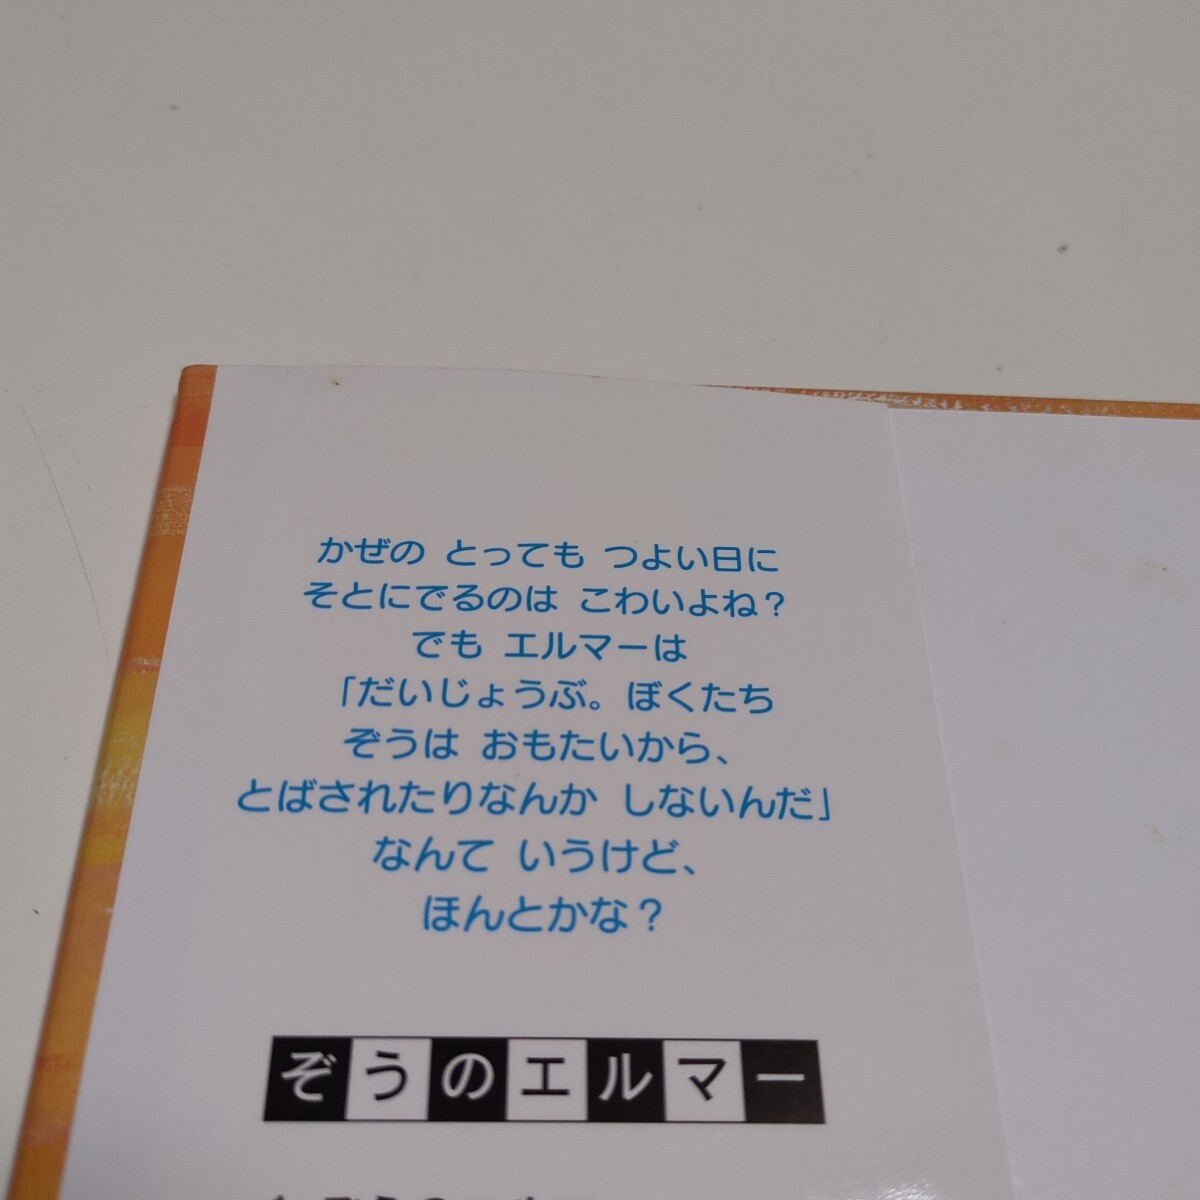 かぜの とっても つよい日に
そとにでるのは こわいよね？
でも エルマーは
「だいじょうぶ。ぼくたち
ぞうは おもたいから、
とばされたりなんか しないんだ」
なんて いうけど、
ほんとかな？
ぞうのエルマー